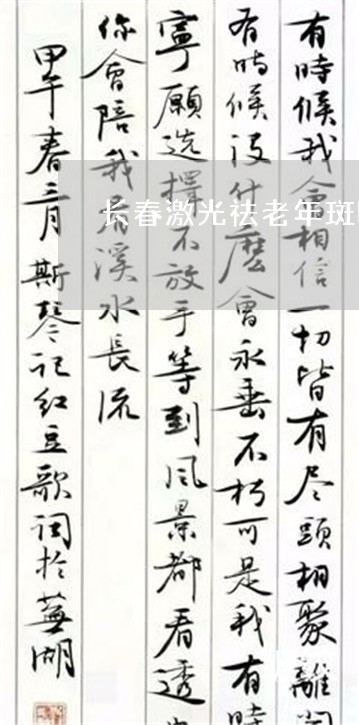 有時候我会相信一切皆有尽頭相聚離
有時候没什麽會永垂不朽可是我有時
寧願选擇不放手等到风景都看透
你會陪我看溪水長流
甲午春三月斯琴记红豆歌词於蕪湖
长春激光祛老年斑